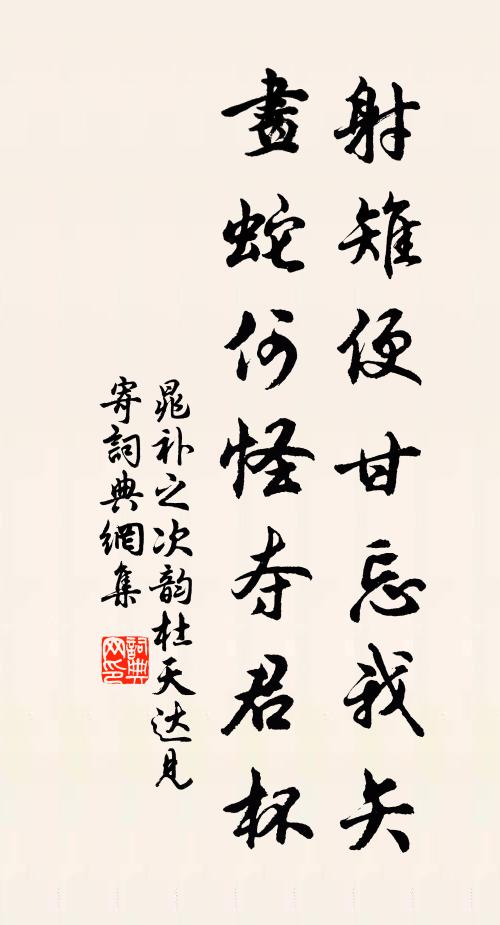 射雉便甘忘我矢
畫蛇何怪夺君杯
晁补之次韵杜天达見
寄詞典網集
詞典
网印